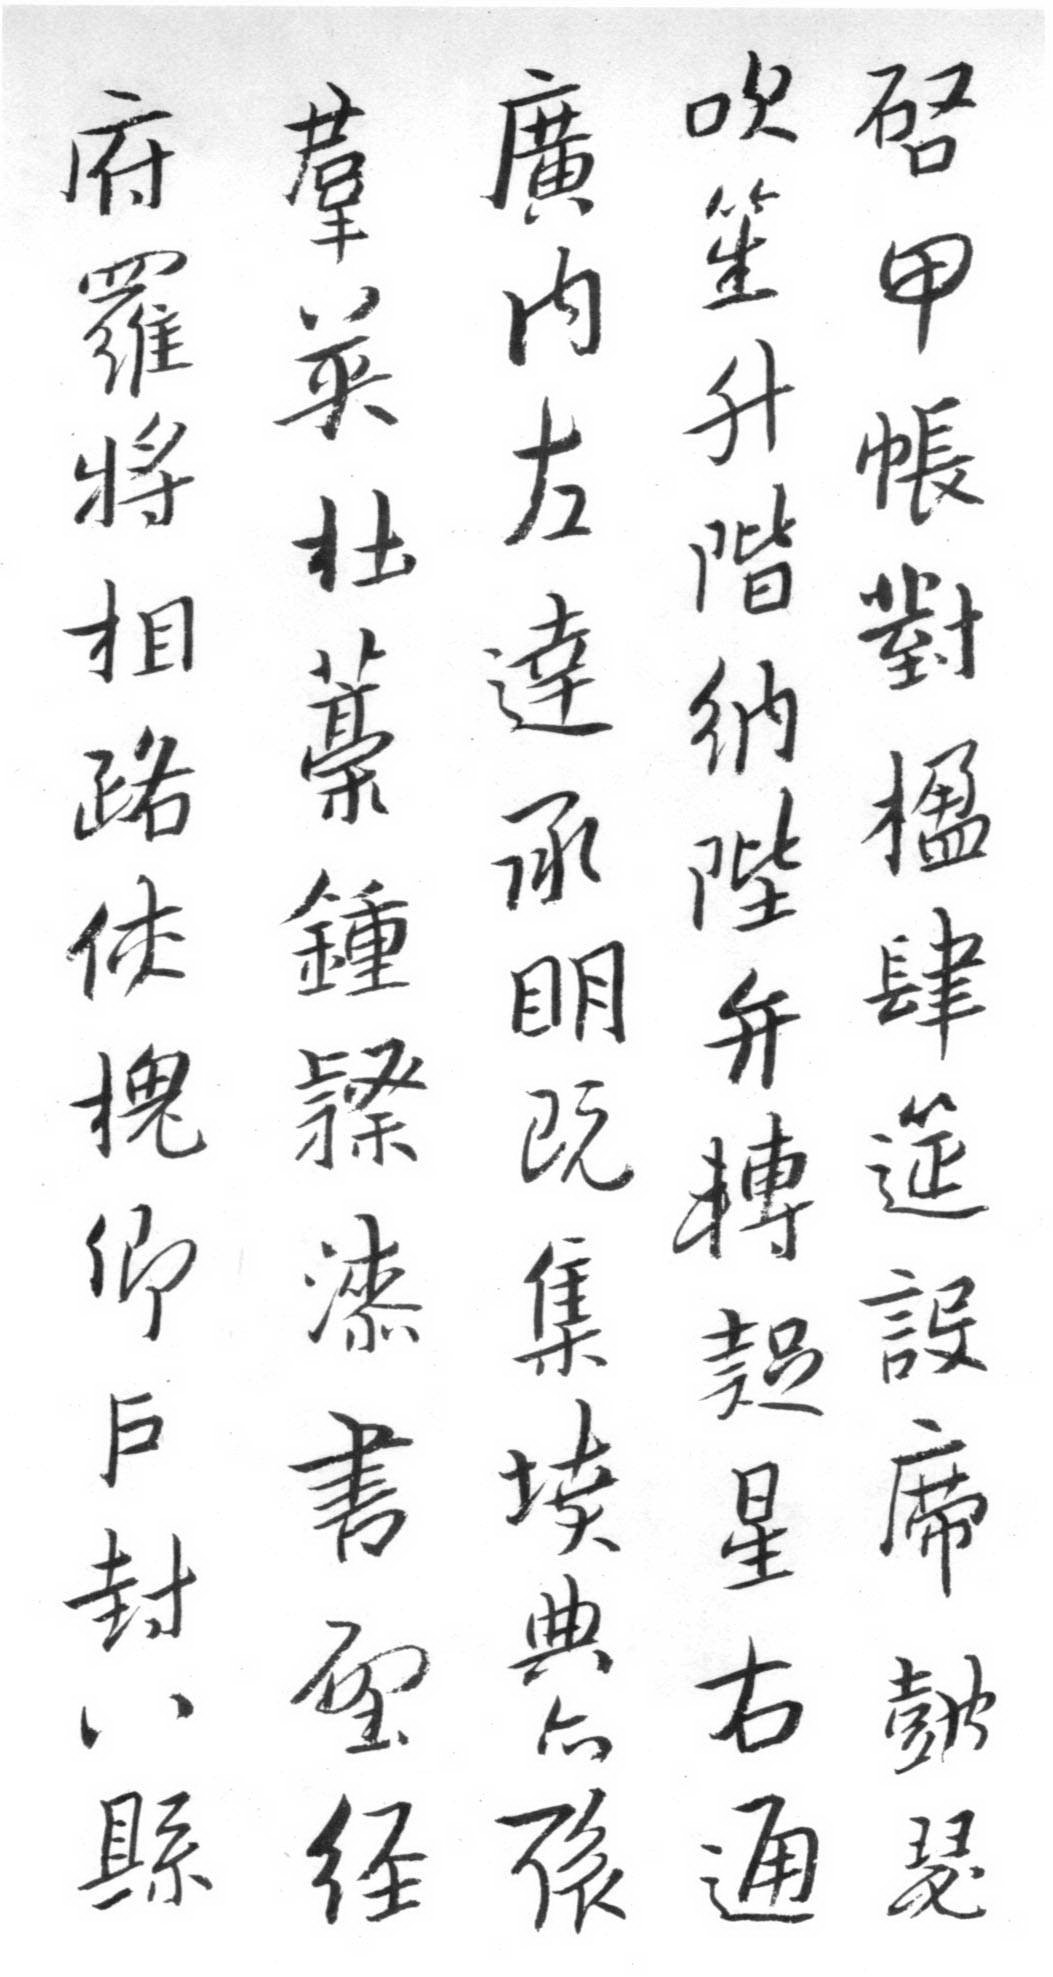 啓甲帳對楹肆筵設席鼓瑟
吹笙升階納陛弁轉疑星右通
廣内左達承明既集墳典亦聚
群英杜藁鍾隸漆書壁経
府羅將相路俠槐卿戶封八縣